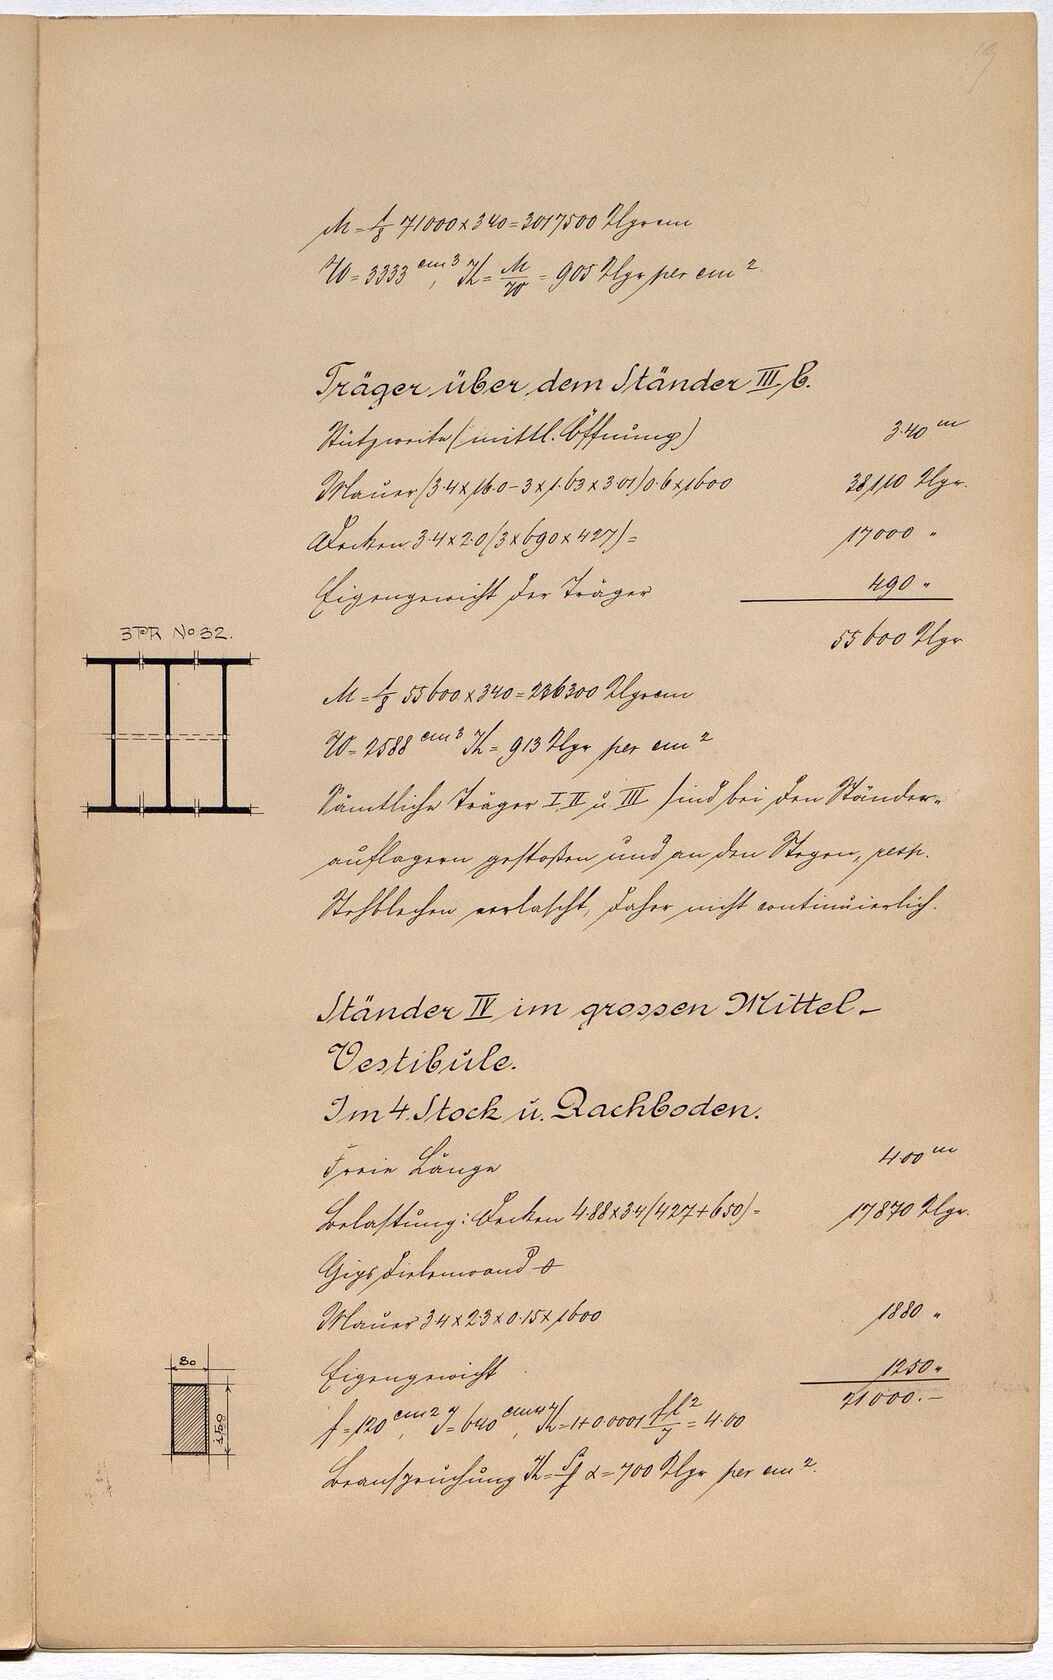 19
M = 1/8 71000 x 340 = 3017500 Klgrcm
W = 3333 cm³, K = M/W = 905 Klgr per cm².
Träger über dem Ständer III b.
Stützweite (mittl. Öffnung) 3·40 m
Mauer (3·4 x 16·0 – 3 x 1·63 x 3·01) 0·6 x 1600 38,110 Klgr.
Decken 3·4 x 2·0 (3 x 690 x 427) = 17000 "
Eigengewicht der Träger 490 "
55600 Klgr
3 PR No 32.
M = 1/8 55600 x 340 = 236300 Klgrcm
W = 2588 cm³ K = 913 Klgr per cm²
Sämtliche Träger I, II u. III sind bei den Ständer-
auflagern gestoßen und an den Stegen, resp.
Stehblechen verlascht, daher nicht continuierlich.
Ständer IV im grossen Mittel-
Vestibule.
Im 4. Stock u. Dachboden.
Freie Länge 4·00 m
Belastung: Decken 4·88 x 3·4 (427 + 650) = 17870 Klgr.
Gips Dielenwand &
Mauer 3·4 x 2·3 x 0·15 x 1600 1880 "
Eigengewicht 1250 "
21000.–
80
150
f = 120 cm², J = 640 cm⁴, K = 1 + 0·0001 f l²/J = 4·00
Beanspruchung K = P/f α = 700 Klgr per cm².